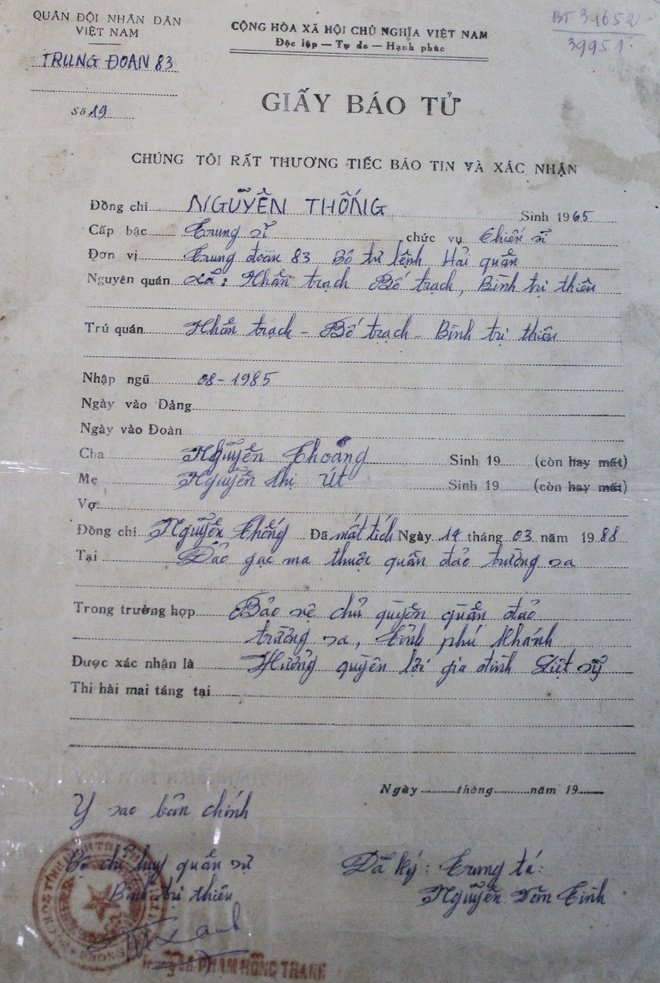 QUÂN ĐỘI NHÂN DÂN
VIỆT NAM
TRUNG ĐOÀN 83
Số 19
CỘNG HÒA XÃ HỘI CHỦ NGHĨA VIỆT NAM
Độc lập — Tự do — Hạnh phúc
BT 31652
39951
GIẤY BÁO TỬ
CHÚNG TÔI RẤT THƯƠNG TIẾC BÁO TIN VÀ XÁC NHẬN
Đồng chí NGUYỄN THỐNG Sinh 1965
Cấp bậc Trung sĩ chức vụ Chiến sĩ
Đơn vị Trung đoàn 83 Bộ tư lệnh Hải quân
Nguyên quán xã: Nhân trạch Bố trạch, Bình trị thiên
Trú quán Nhân trạch - Bố trạch - Bình trị thiên
Nhập ngũ 08-1985
Ngày vào Đảng
Ngày vào Đoàn
Cha Nguyễn Khoáng Sinh 19 (còn hay mất)
Mẹ Nguyễn thị út Sinh 19 (còn hay mất)
Vợ
Đồng chí Nguyễn Thống Đã mất tích Ngày 14 tháng 03 năm 1988
Tại Đảo gạc ma thuộc quần đảo trường sa
Trong trường hợp Bảo vệ chủ quyền quần đảo
trường sa, tỉnh phú khánh
Được xác nhận là Hưởng quyền lợi gia đình Liệt sỹ
Thi hài mai táng tại
Ngày tháng năm 19
Y sao bản chính
Bộ chỉ huy quân sự
Bình trị thiên
Đã ký: Trung tá:
Nguyễn Văn Tình
Trung tá PHẠM HỒNG THANH